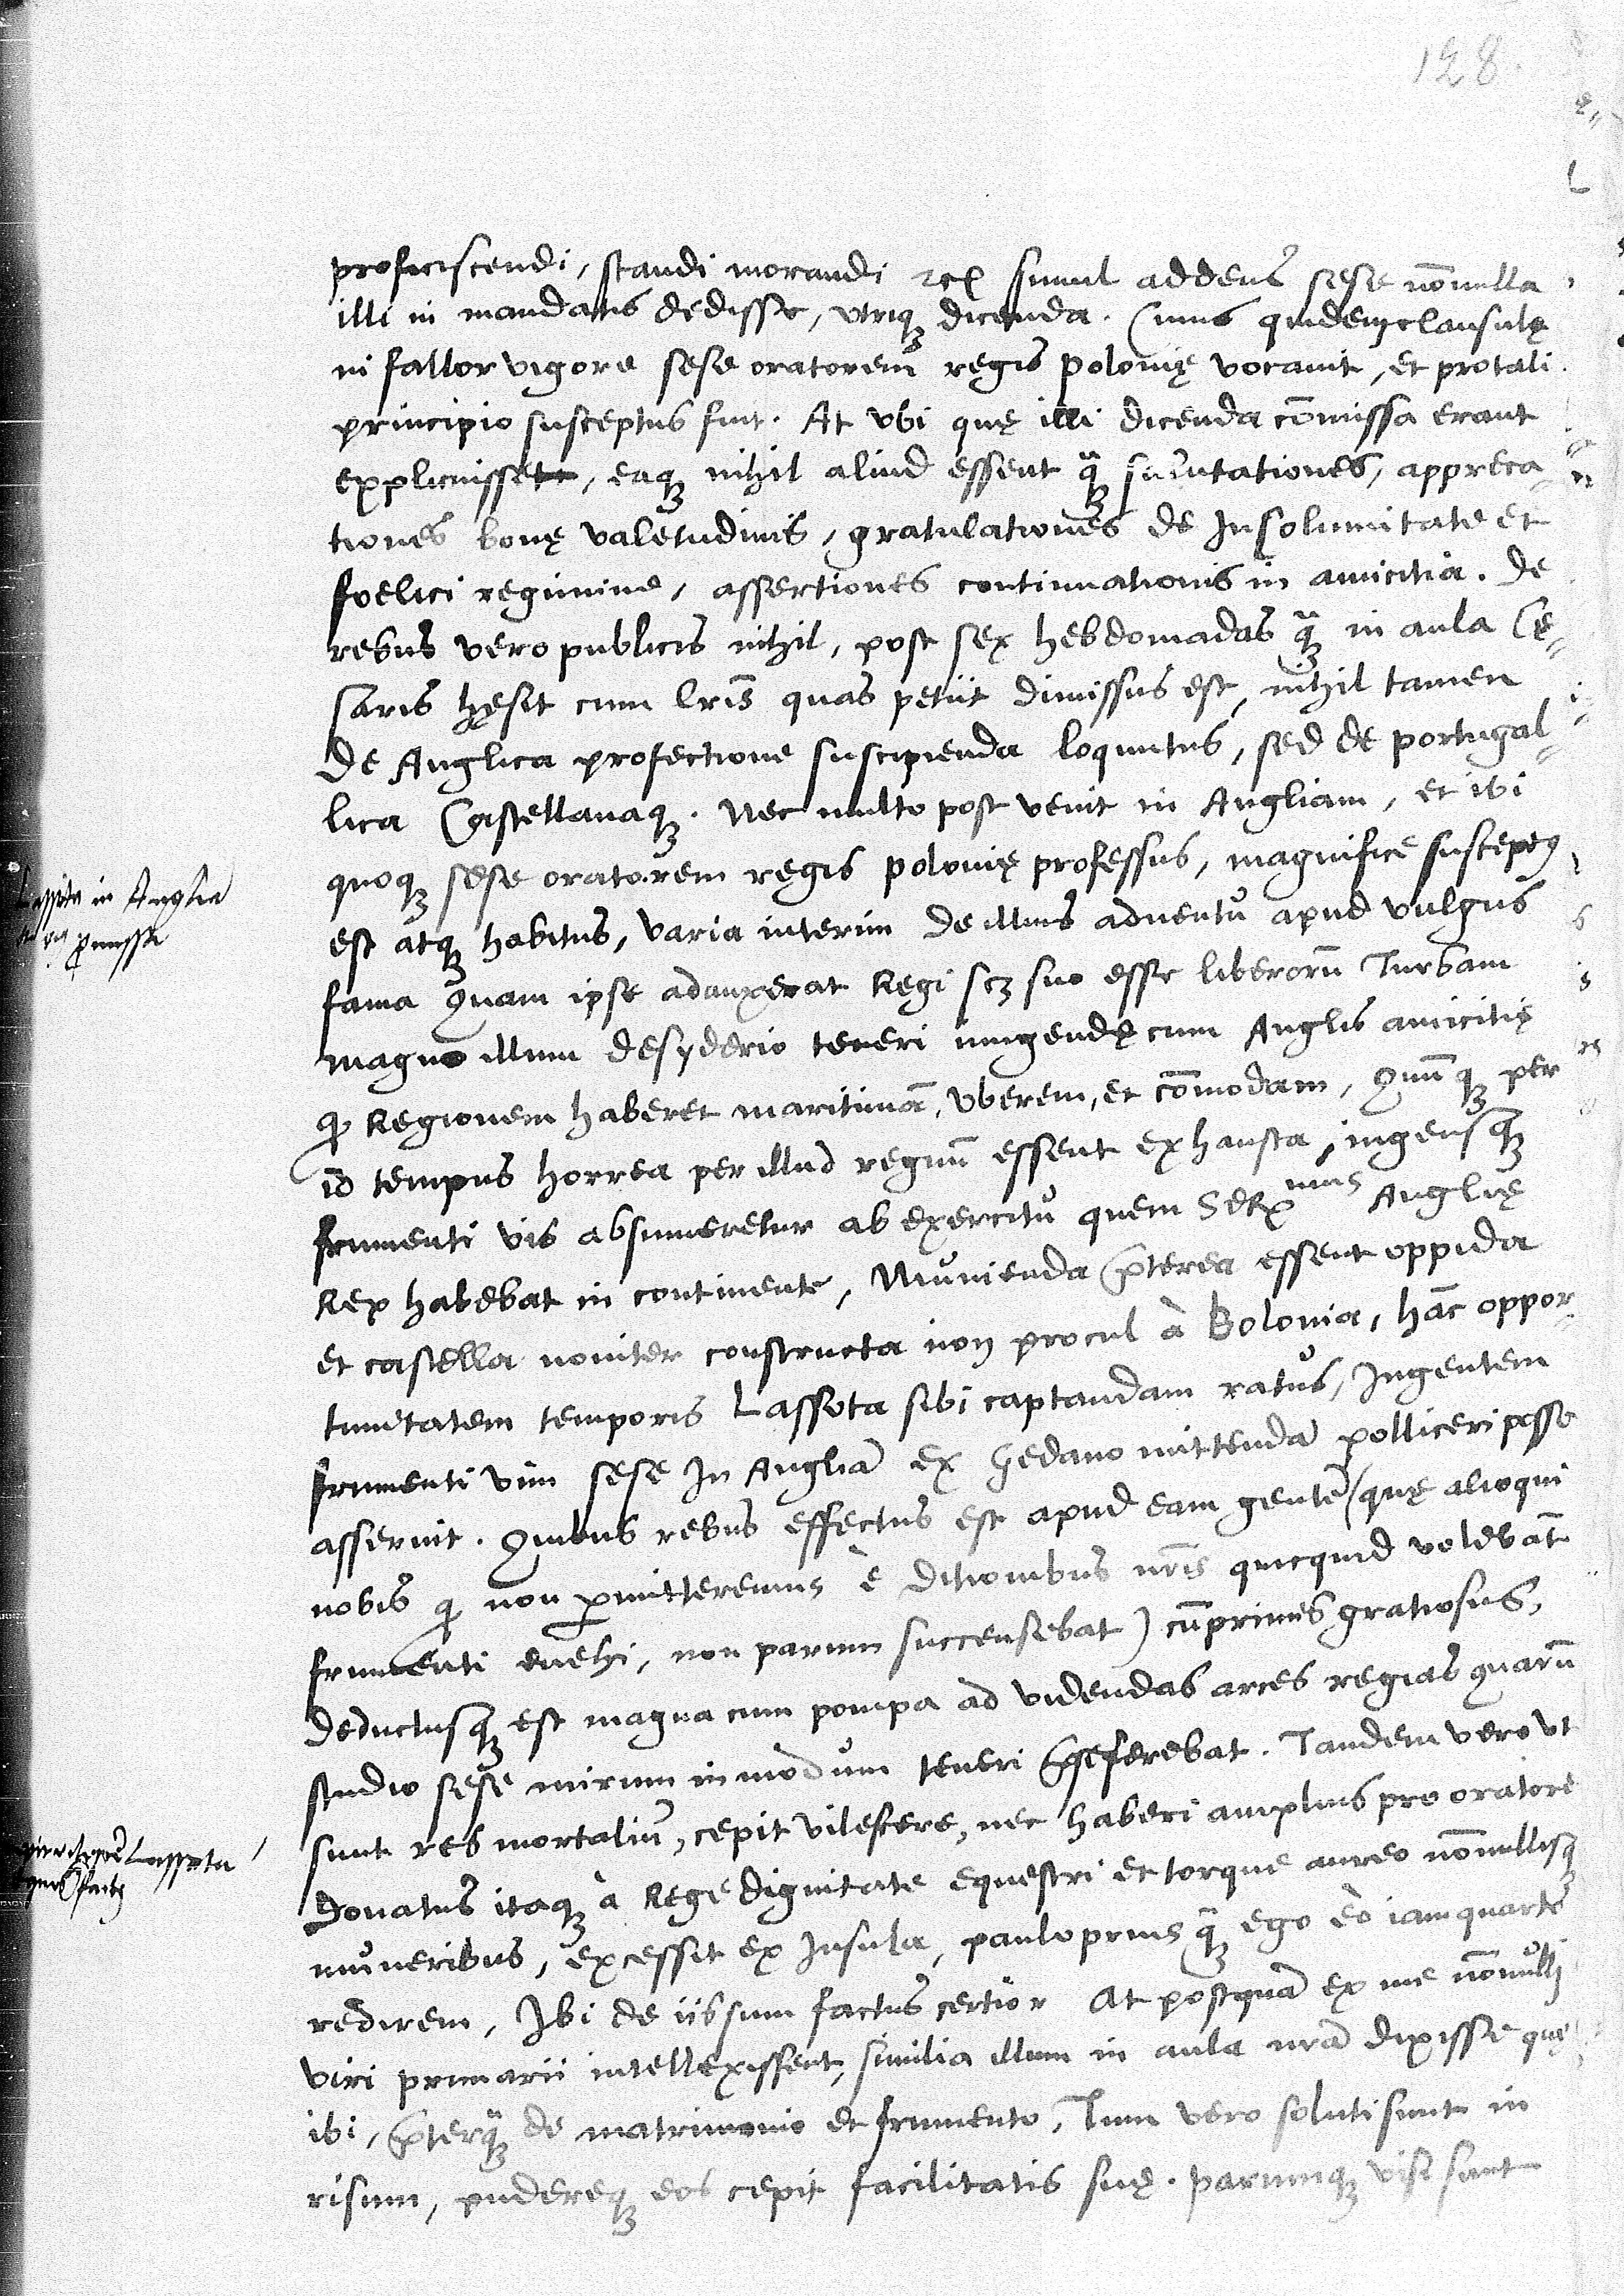 128.
proficiscendi, standi morandi etc simul addens sese nōnulla
illi in mandatis dedisse, utriq̨ dicenda. Cuius quidem clausulę
ni fallor vigore sese oratorem regis Polonię vocavit, et pro tali
principio susceptus fuit. At ubi quę illi dicenda cōmissa erant
explicuisset, eaq̨ nihil aliud essent q̃ salutationes, appreca-
tiones bonę valetudinis, gratulationes de Incolumitate et
foelici regimine, assertiones continuationis in amicitia. De
rebus vero publicis nihil, post sex hebdomadas q̃ in aula Cę-
saris hęsit cum lr̄is quas petiit dimissus est, nihil tamen
de Anglica profectione suscipienda loquutus, sed de portugal-
lica Castellanaq̨. Nec multo post venit in Angliam, et ibi
quoq̨ sese oratorem regis Polonię professus, magnifice suscept9
est atq̨ habitus, varia interim de illius adventu apud vulgus
fama Quam ipse adauxerat Regi scz suo esse liberorū Turbam
magno illum desyderio teneri iungendę cum Anglis amicitię
q̄ Regionem haberet maritimā, uberem, et cōmodam, Quūq̨ per
id tempus horrea per illud regnū essent exhausta, ingensq̨
frumenti vis absumeretur ab exercitu quem Serx mus Anglię
Rex habebat in continente, Munienda p̄terea essent oppida
et castella noviter constructa non procul à Bolonia, hāc oppor-
tunitatem temporis Lassota sibi captandam ratus, Ingentem
frumenti vim sese In Angliā ex Gedano mittendā polliceri posse
asseruit. Quibus rebus effectus est apud eam gentē (quę alioqui
nobis q̄ non p̱mitteremus è ditionibus nr̄is quicquid volebāt
frumenti evehi, non parum succensebat) cūprimis gratiosus,
deductusq̨ est magna cum pompa ad videndas arces regias quarū
studio sese mirum in modum teneri p̄seferebat. Tandem vero ut
sunt res mortaliū, cepit vilescere, nec haberi amplius pro oratore
Donatus itaq̨ à Rege dignitate equestri et torque aureo nōnullisq̨
muneribus, excessit ex Insula, paulo prius q̃ ego eò iam quartū
redirem, Ibi de iis sum factus certior At postquā ex me nōnulli
viri primarii intellexissent, similia illum in aula nr̄a dixisse quę
ibi, p̄terq̃ de matrimonio et frumento, Tum vero soluti sunt in
risum, pudereq̨ eos cepit facilitatis suę. Parumq̨ visi sunt
Lassota in Anglia
Lassota